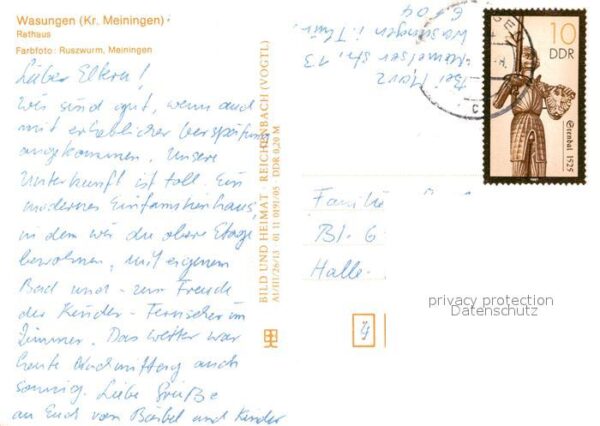 Wasungen (Kr. Meiningen)
Rathaus
Farbfoto: Ruszwurm, Meiningen
Liebe Eltern!
Wir sind gut, wenn auch
mit erheblicher Verspätung
angekommen. Unsere
Unterkunft ist toll. Ein
modernes Einfamilienhaus,
in dem wir die obere Etage
bewohnen, mit eigenem
Bad und - zur Freude
der Kinder - Fernseher im
Zimmer. Das Wetter war
heute Nachmittag auch
sonnig. Liebe Grüße
an Euch von Bärbel und Kinder
BILD UND HEIMAT · REICHENBACH (VOGTL)
A1/III/26/13 01 11 0191/05 DDR 0,20 M
str. 13
Wasungen i. Thür.
6104
10
DDR
1525
Familie
Bl. 6
Halle
privacy protection
Datenschutz